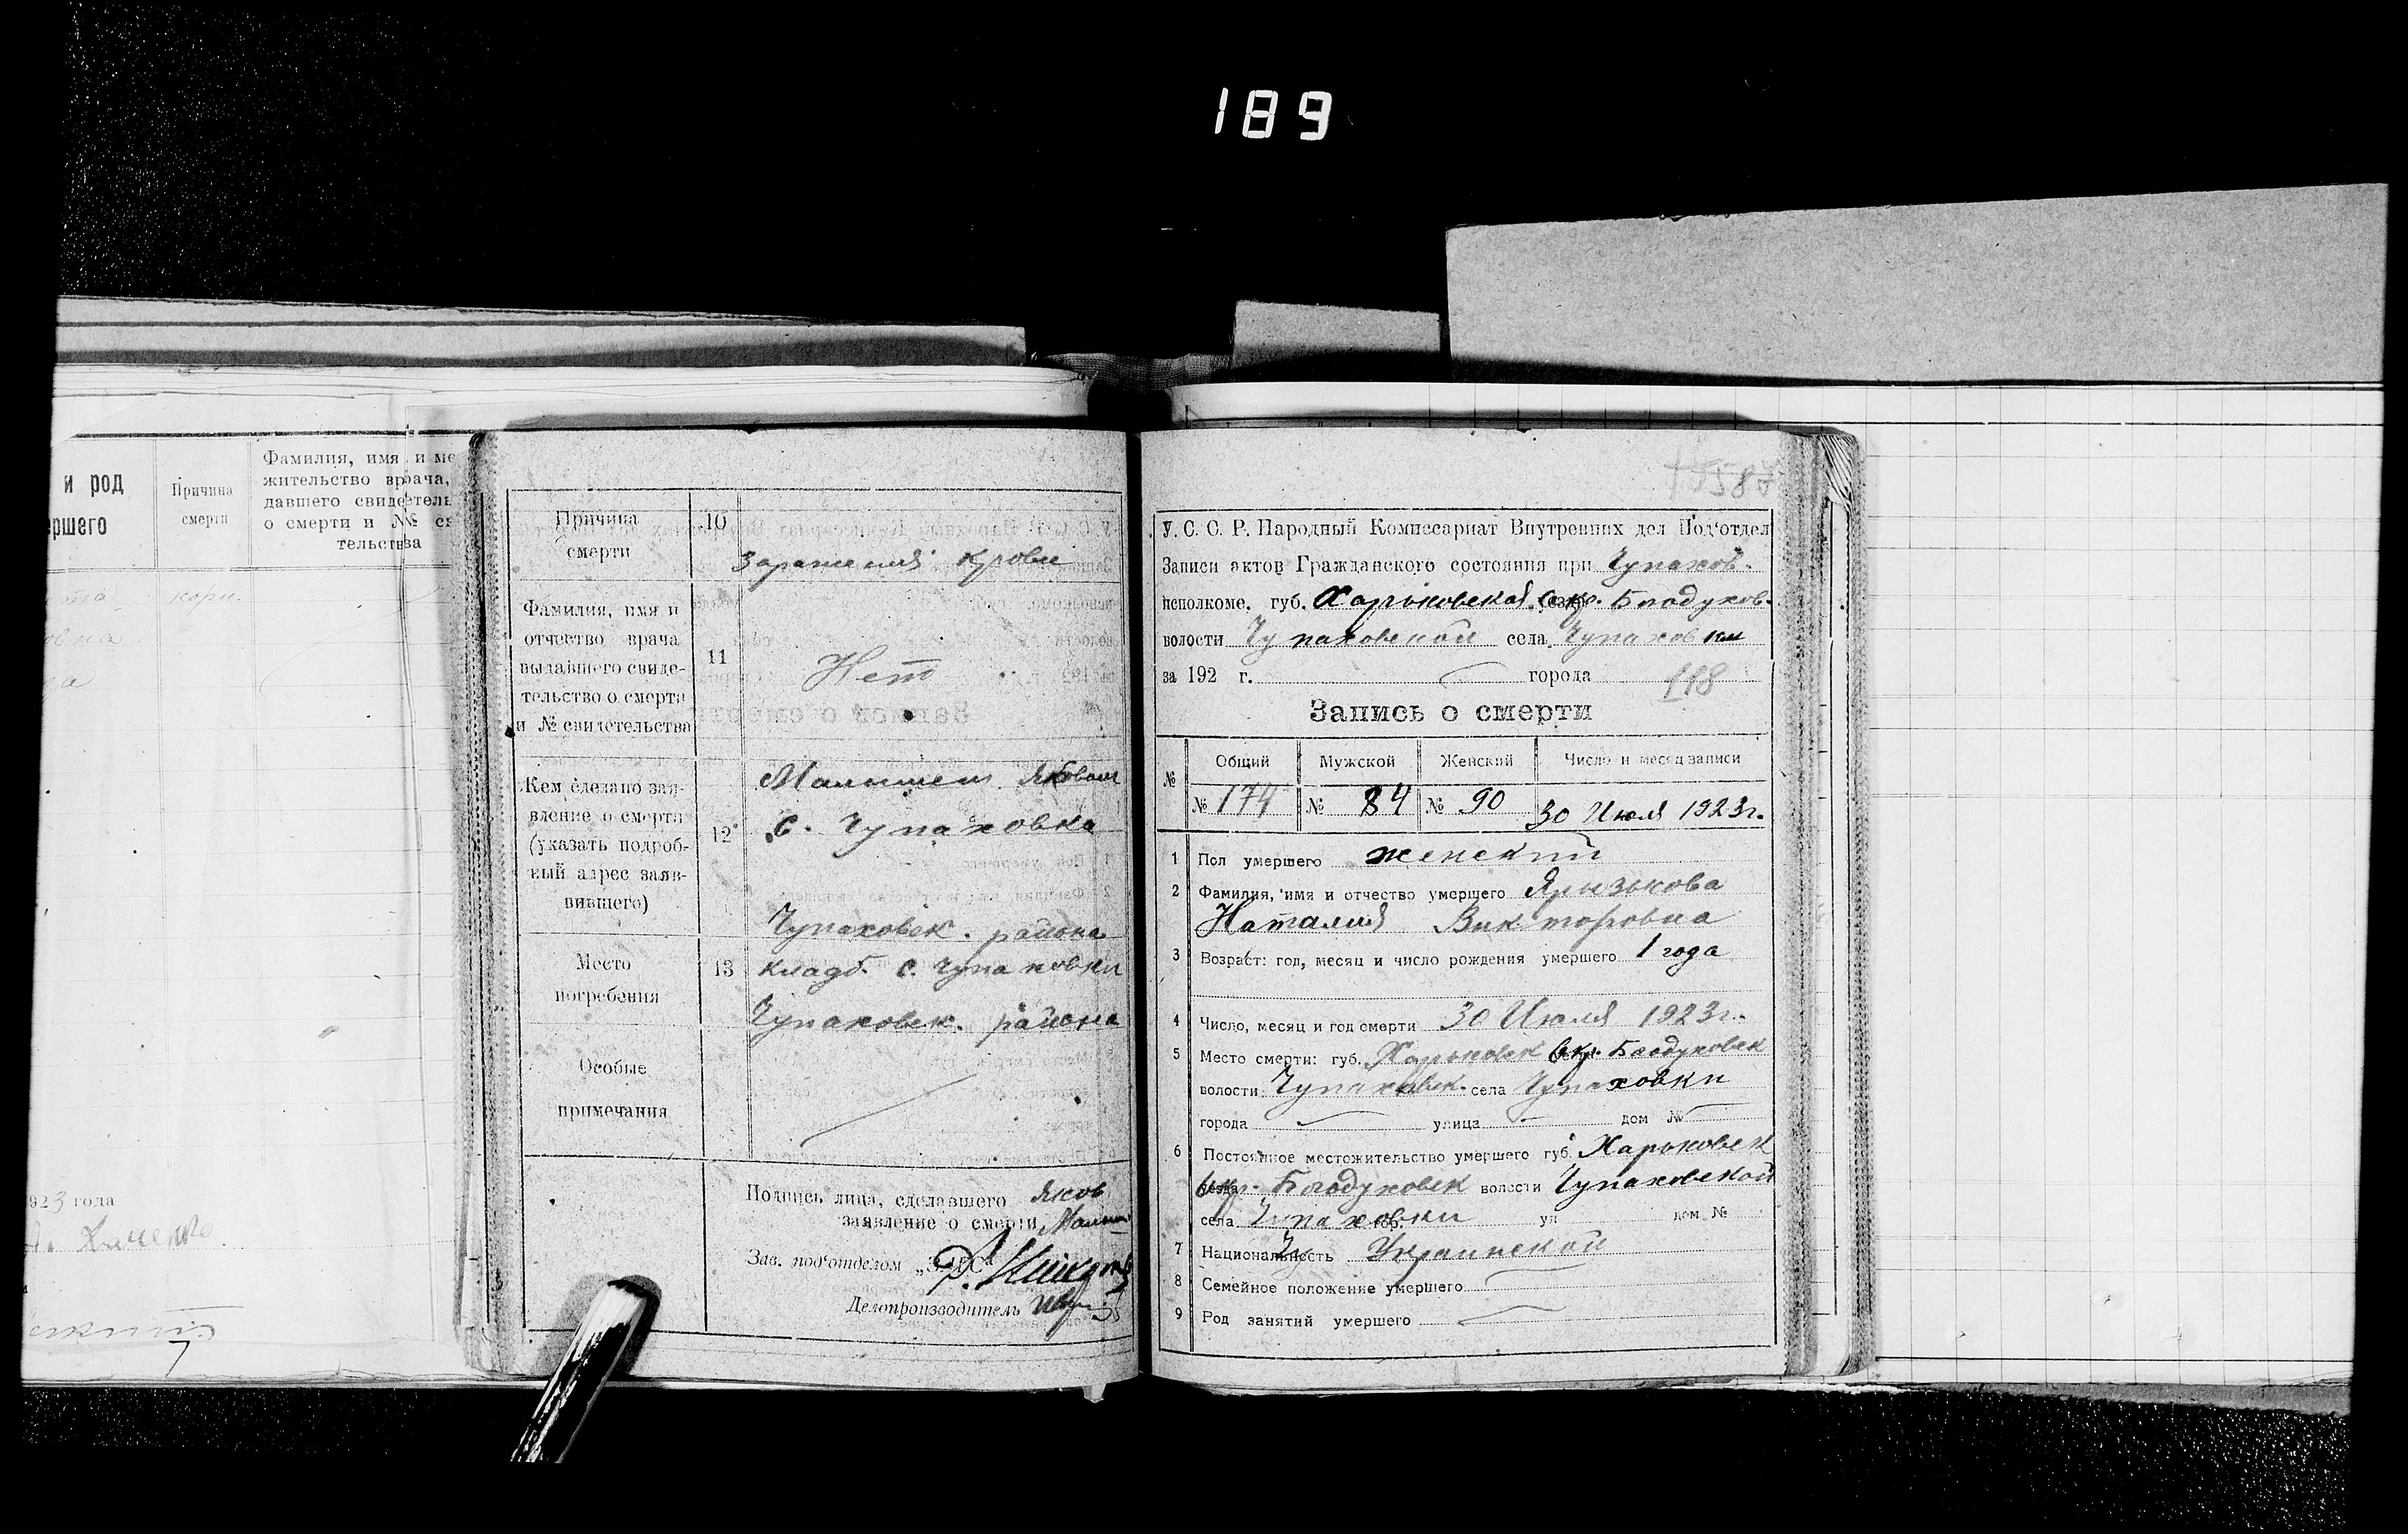 189
и род
ршего
Причина
смерти
Фамилия, имя и ме
жительство врача,
давшего свидетель
о смерти и №№ св
тельства
кори.
923 года
Причина
смерти
10
заражения крови
Фамилия, имя и
отчество врача
выдавшего свиде-
тельство о смерти
и № свидетельства
11
Нет
Кем сделано зая-
вление о смерти
(указать подроб-
ный адрес заяв-
вившего)
12
Малышем Яковом
с. Чупаховка
Чупаховск. района
Место
погребения
13
кладб. с. Чупаховки
Чупаховск. района
Особые
примечания
Подпись лица, сделавшего Яков
заявление о смерти
Зав. под'отделом „ЗАГС“
Делопроизводитель
587
У. С. С. Р. Народный Комиссариат Внутренних дел Под'отдел
Записи актов Гражданского состояния при Чупахов.
исполкоме, губ. Харьковская окр. Богодухов.
волости Чупаховской села Чупаховки
за 192 г. города 118
Запись о смерти
№ Общий Мужской Женский Число и месяц записи
№ 174 № 84 № 90 30 Июля 1923г.
1 Пол умершего женский
2 Фамилия, имя и отчество умершего Ярызькова
Наталия Викторовна
3 Возраст: год, месяц и число рождения умершего 1 года
4 Число, месяц и год смерти 30 Июля 1923г.
5 Место смерти: губ. Харьковск окр. Богодуховск
волости Чупаховск. села Чупаховки
города улица дом №
6 Постоянное местожительство умершего губ. Харьковск
окр. Богодуховск волости Чупаховской
села Чупаховки гор. ул дом №
7 Национальность Украинской
8 Семейное положение умершего
9 Род занятий умершего